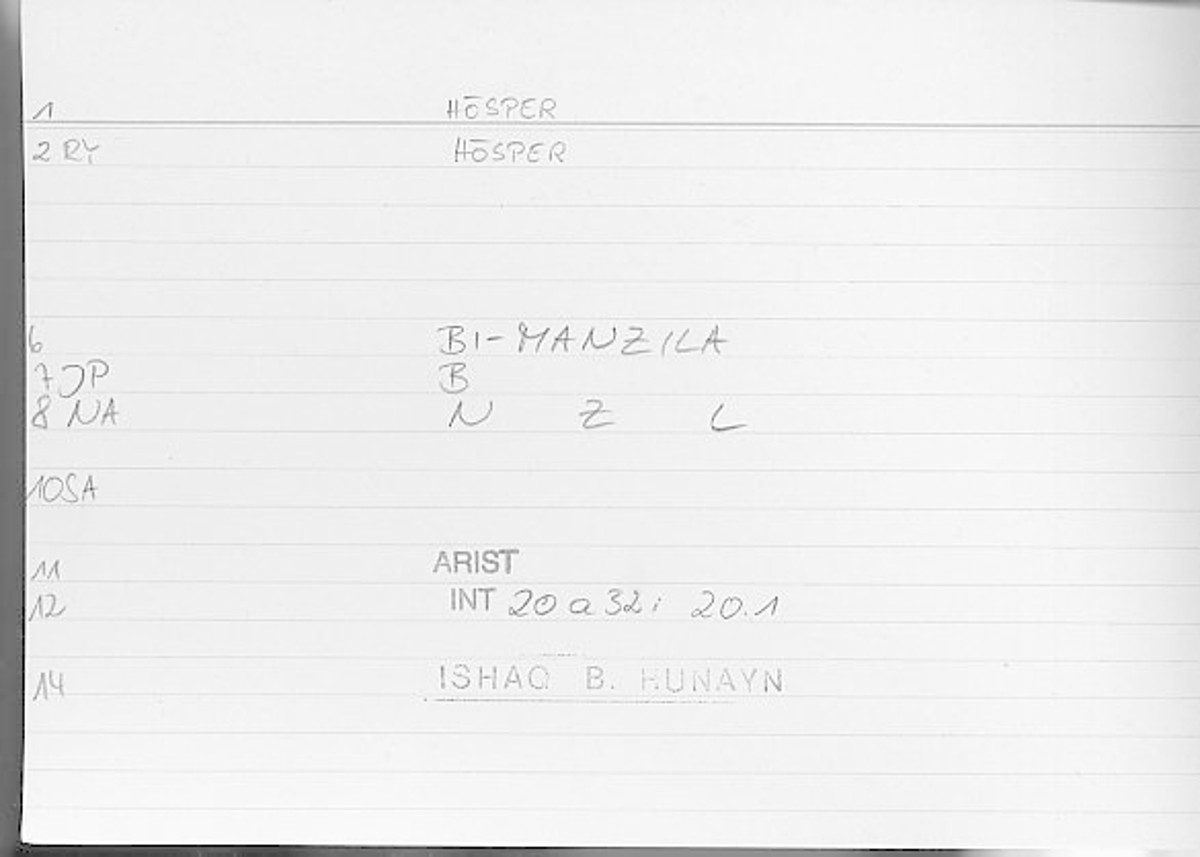 1 HŌSPER
2 RY HŌSPER
6 BI-MANZILA
7 JP B
8 NA N Z L
10 SA
11 ARIST
12 INT 20 a 32; 20.1
14 ISHAQ B. HUNAYN